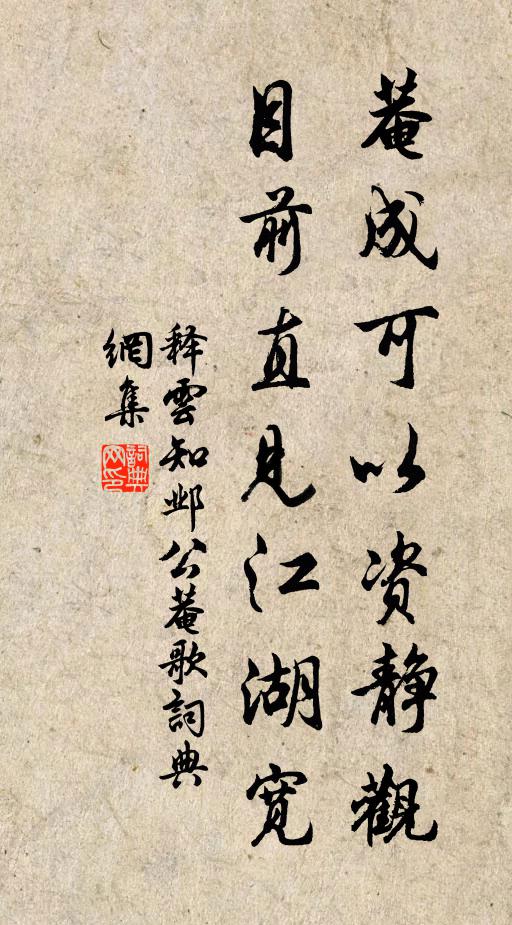 菴成可以资静觀
目前直見江湖寬
释雲知邺公菴歌詞典
網集
詞典
网印